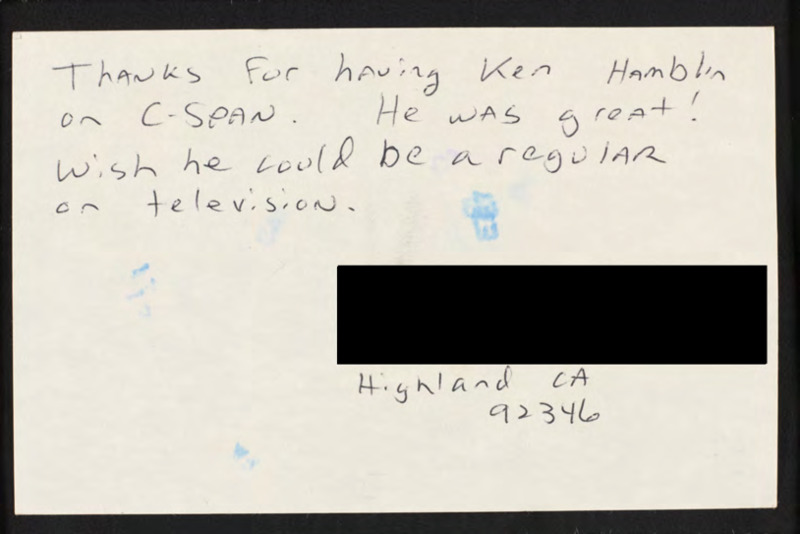 Thanks for having Ken Hamblin
on C-SPAN. He was great!
Wish he could be a regular
on television.
Highland CA
92346